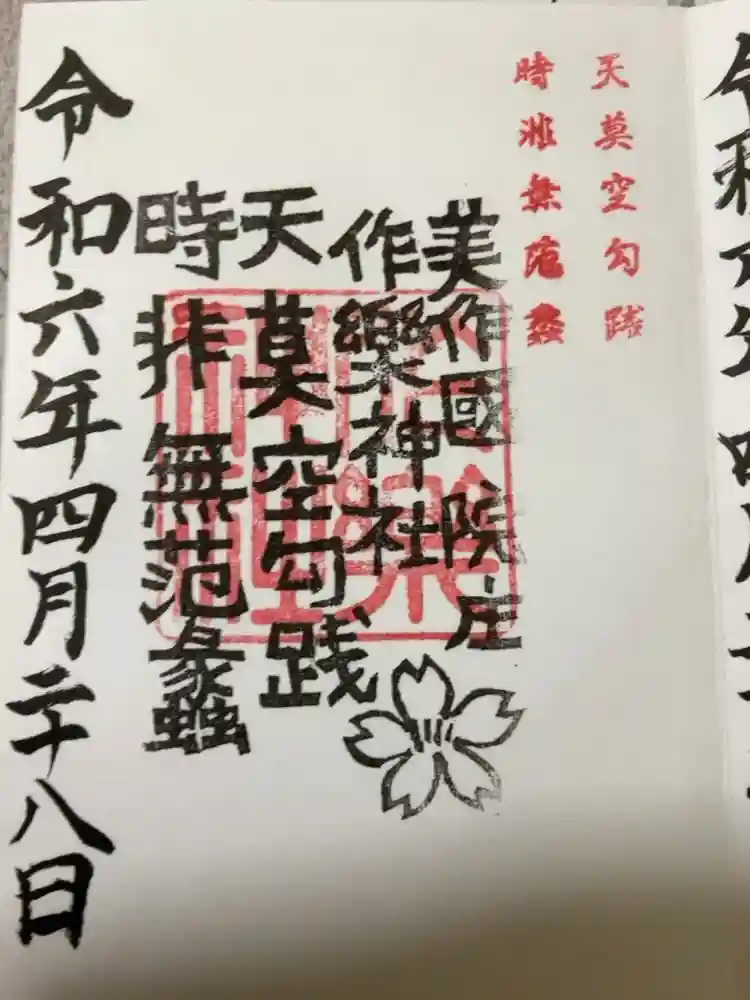 天莫空勾践
時非無范蠡
美作國 院庄
作樂神社
天莫空勾践
時非無范蠡
作樂神社
令和六年四月二十八日